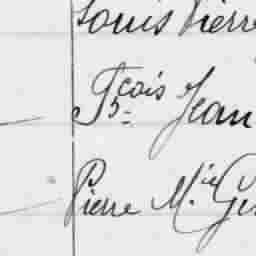 Louis Pierre
Fçois Jean
Pierre M.ie